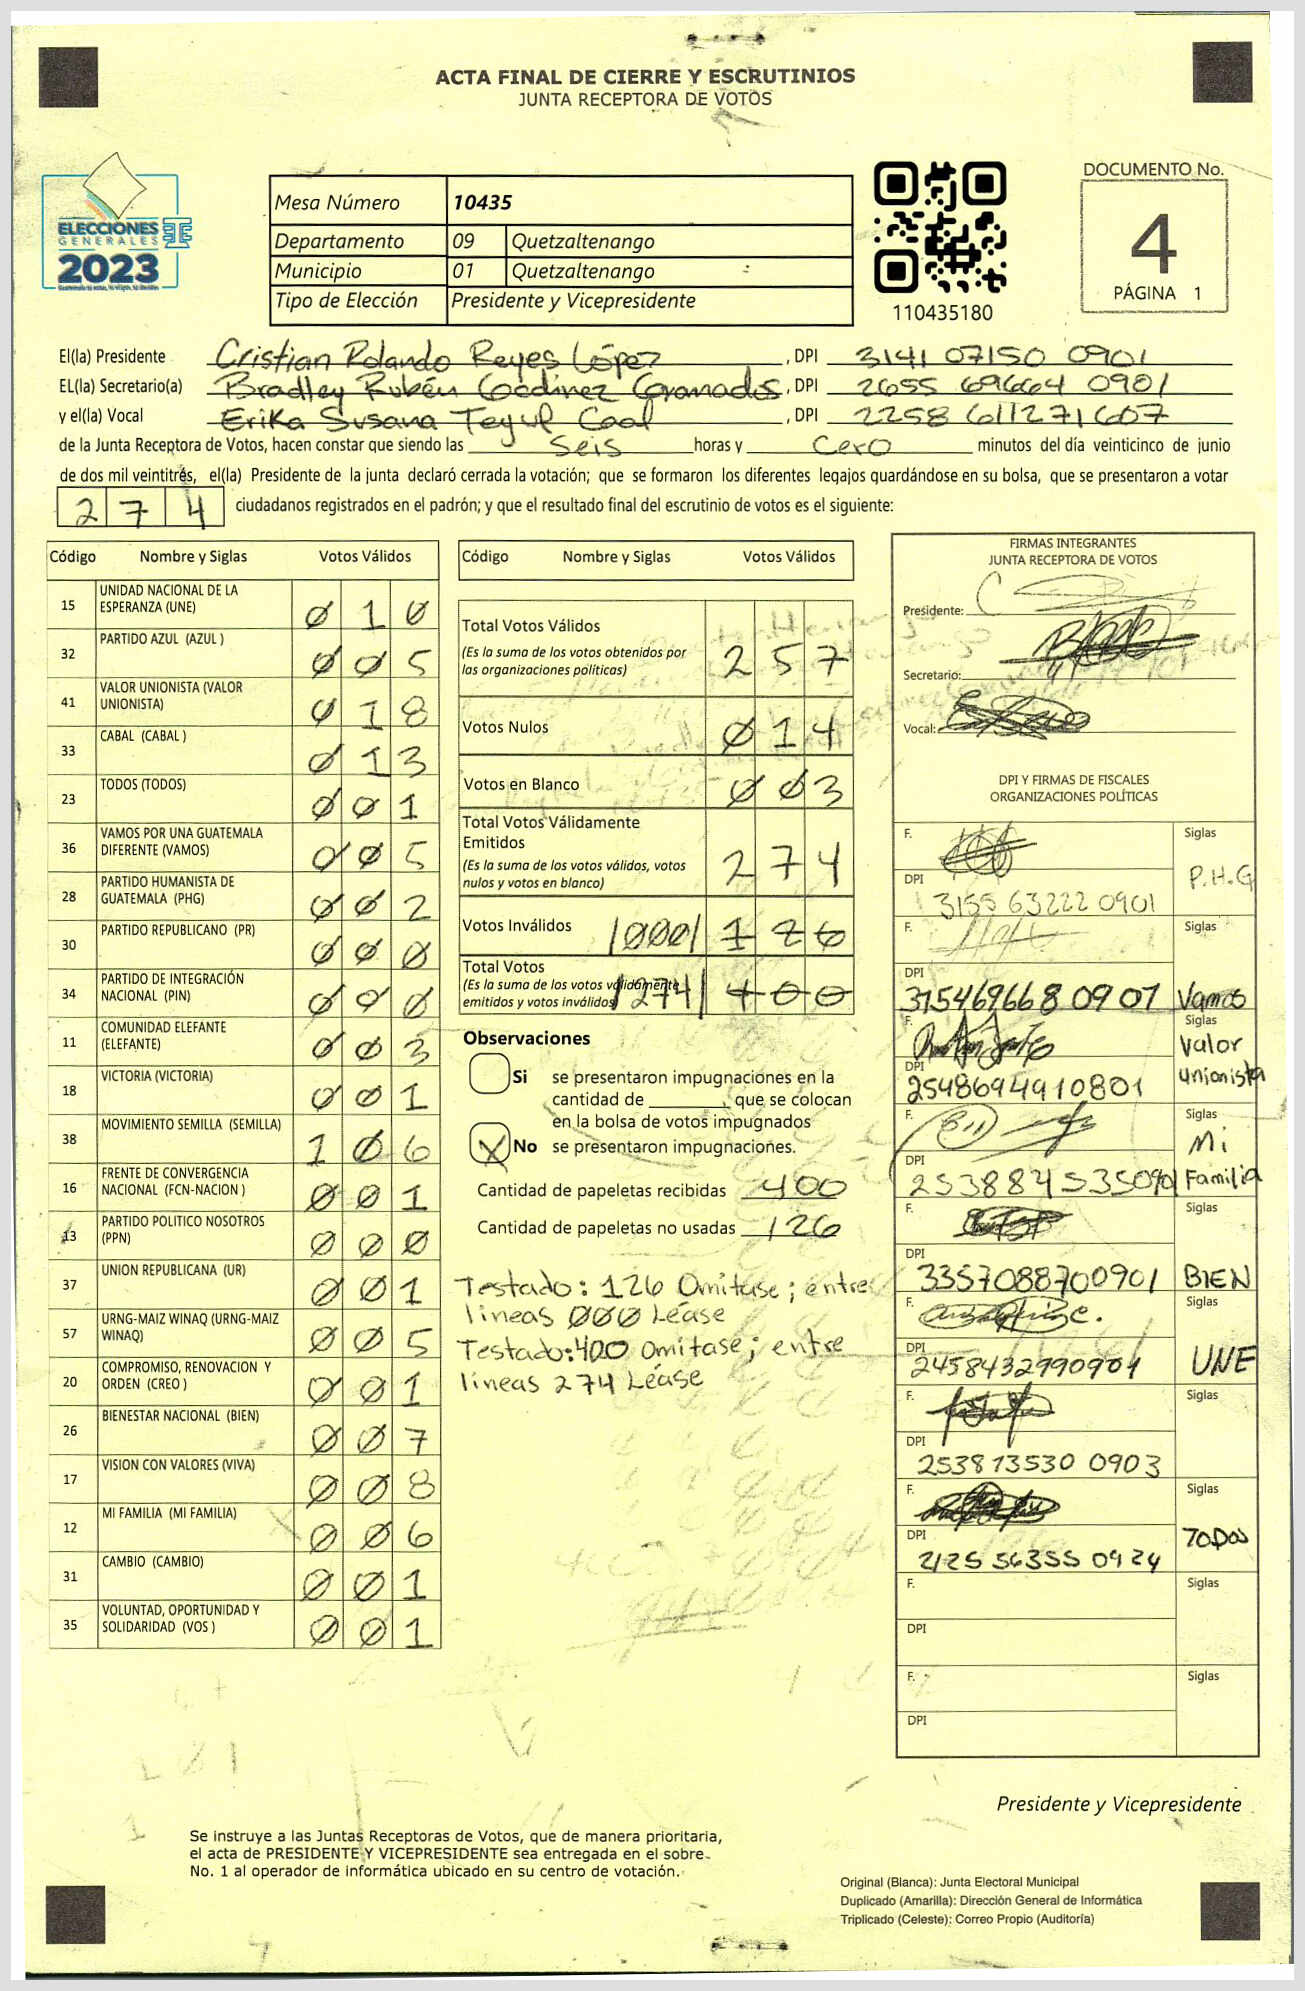 ACTA FINAL DE CIERRE Y ESCRUTINIOS
JUNTA RECEPTORA DE VOTOS
ELECCIONES
GENERALES
2023
Mesa Número 10435
Departamento 09 Quetzaltenango
Municipio 01 Quetzaltenango
Tipo de Elección Presidente y Vicepresidente
110435180
DOCUMENTO No.
4
PÁGINA 1
El(la) Presidente Cristian Rolando Reyes López, DPI 3141 07150 0901
EL(la) Secretario(a) Bradley Rubén Godinez Granados, DPI 2655 69664 0901
y el(la) Vocal Erika Susana Teyul Caal, DPI 2258 61127 1607
de la Junta Receptora de Votos, hacen constar que siendo las seis horas y cero minutos del día veinticinco de junio
de dos mil veintitrés, el(la) Presidente de la junta declaró cerrada la votación; que se formaron los diferentes legajos guardándose en su bolsa, que se presentaron a votar
274 ciudadanos registrados en el padrón; y que el resultado final del escrutinio de votos es el siguiente:
Código Nombre y Siglas Votos Válidos
15 UNIDAD NACIONAL DE LA ESPERANZA (UNE) 010
32 PARTIDO AZUL (AZUL ) 005
41 VALOR UNIONISTA (VALOR UNIONISTA) 018
33 CABAL (CABAL ) 013
23 TODOS (TODOS) 001
36 VAMOS POR UNA GUATEMALA DIFERENTE (VAMOS) 005
28 PARTIDO HUMANISTA DE GUATEMALA (PHG) 002
30 PARTIDO REPUBLICANO (PR) 000
34 PARTIDO DE INTEGRACIÓN NACIONAL (PIN) 000
11 COMUNIDAD ELEFANTE (ELEFANTE) 003
18 VICTORIA (VICTORIA) 001
38 MOVIMIENTO SEMILLA (SEMILLA) 106
16 FRENTE DE CONVERGENCIA NACIONAL (FCN-NACION ) 001
13 PARTIDO POLITICO NOSOTROS (PPN) 000
37 UNION REPUBLICANA (UR) 001
57 URNG-MAIZ WINAQ (URNG-MAIZ WINAQ) 005
20 COMPROMISO, RENOVACION Y ORDEN (CREO ) 001
26 BIENESTAR NACIONAL (BIEN) 007
17 VISION CON VALORES (VIVA) 008
12 MI FAMILIA (MI FAMILIA) 006
31 CAMBIO (CAMBIO) 001
35 VOLUNTAD, OPORTUNIDAD Y SOLIDARIDAD (VOS ) 001
Código Nombre y Siglas Votos Válidos
Total Votos Válidos 257
(Es la suma de los votos obtenidos por
las organizaciones políticas)
Votos Nulos 014
Votos en Blanco 003
Total Votos Válidamente
Emitidos 274
(Es la suma de los votos válidos, votos
nulos y votos en blanco)
Votos Inválidos /000/ 126
Total Votos
(Es la suma de los votos válidamente
emitidos y votos inválidos) /274/ 400
Observaciones
Si se presentaron impugnaciones en la
cantidad de ________, que se colocan
en la bolsa de votos impugnados
X No se presentaron impugnaciones.
Cantidad de papeletas recibidas 400
Cantidad de papeletas no usadas 126
Testado: 126 Omitase; entre
lineas 000 Léase
Testado: 400 Omitase; entre
lineas 274 Léase
FIRMAS INTEGRANTES
JUNTA RECEPTORA DE VOTOS
Presidente:
Secretario:
Vocal:
DPI Y FIRMAS DE FISCALES
ORGANIZACIONES POLÍTICAS
F. Siglas
DPI 3155 63222 0901 P.H.G
F. Siglas
DPI 315469668 0901 Vamos
F. Siglas
DPI 2548694910801 Valor unionista
F. Siglas
DPI 2538845350901 Mi Familia
F. Siglas
DPI 3357088700901 BIEN
F. Siglas
DPI 2458432990901 UNE
F. Siglas
DPI 253813530 0903
F. Siglas
DPI 2125 56355 0924 TODOS
F. Siglas
DPI
F. Siglas
DPI
Presidente y Vicepresidente
Se instruye a las Juntas Receptoras de Votos, que de manera prioritaria,
el acta de PRESIDENTE Y VICEPRESIDENTE sea entregada en el sobre
No. 1 al operador de informática ubicado en su centro de votación.
Original (Blanca): Junta Electoral Municipal
Duplicado (Amarilla): Dirección General de Informática
Triplicado (Celeste): Correo Propio (Auditoría)